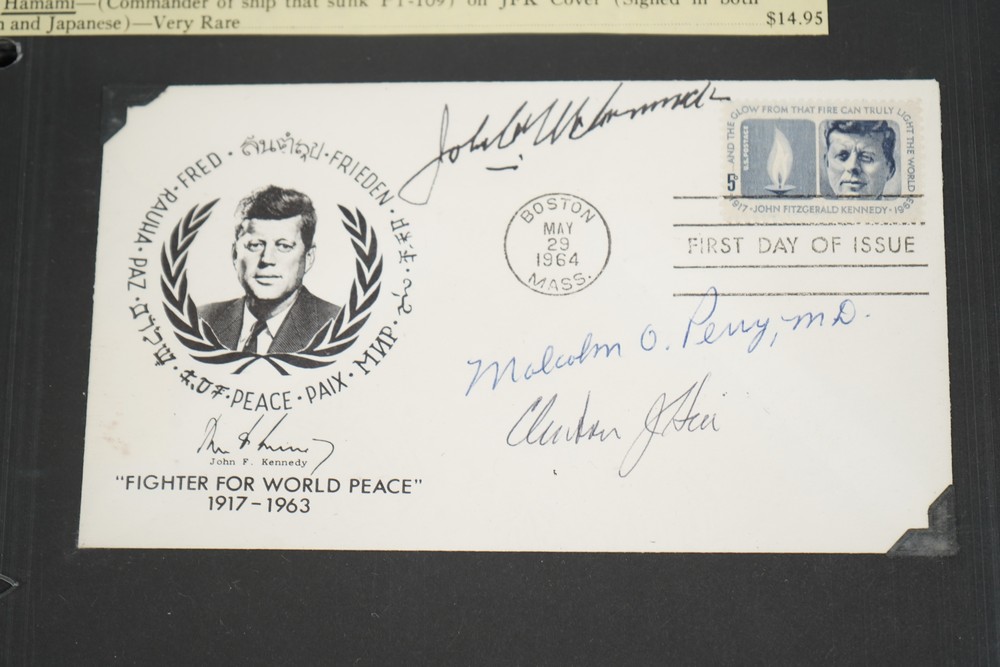 Hamami—(Commander of ship that sunk PT-109) on JFK Cover (Signed in both
and Japanese)—Very Rare
$14.95
John W McCormack
AND THE GLOW FROM THAT FIRE CAN TRULY LIGHT THE WORLD
U.S. POSTAGE
5¢
1917 · JOHN FITZGERALD KENNEDY · 1963
BOSTON
MAY
29
1964
MASS.
FIRST DAY OF ISSUE
PAZ · RAUHA · FRED · สันติสุข · FRIEDEN
МИР · PAIX · PEACE
Malcolm O. Perry, M.D.
Clinton J Hill
John F. Kennedy
"FIGHTER FOR WORLD PEACE"
1917-1963